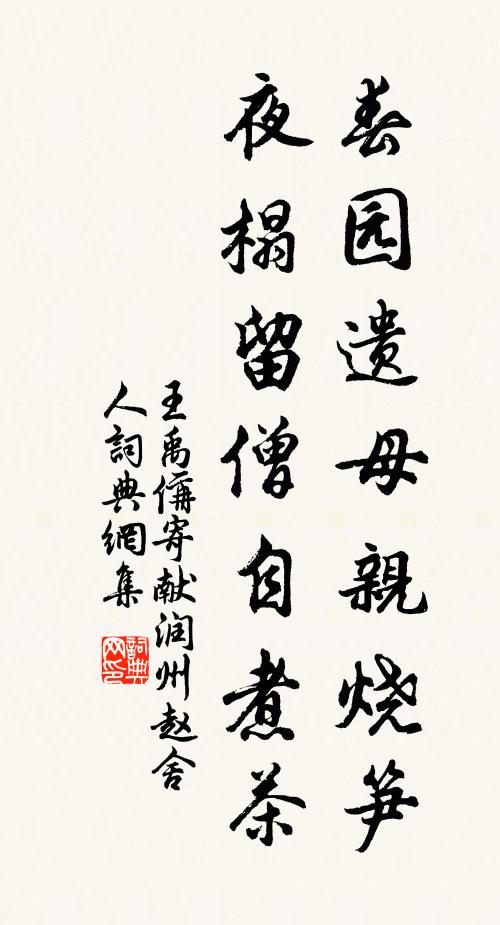 春园遗母親烧笋
夜榻留僧自煮茶
王禹偁寄献润州赵舍
人詞典網集
詞典
网印